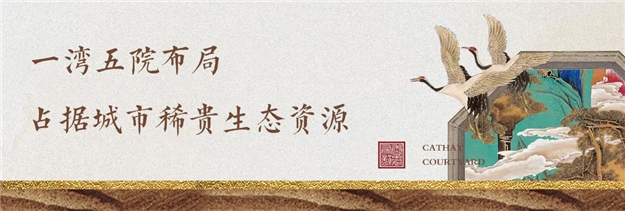 一湾五院布局
占据城市稀贵生态资源
CATHAY
COURTYARD